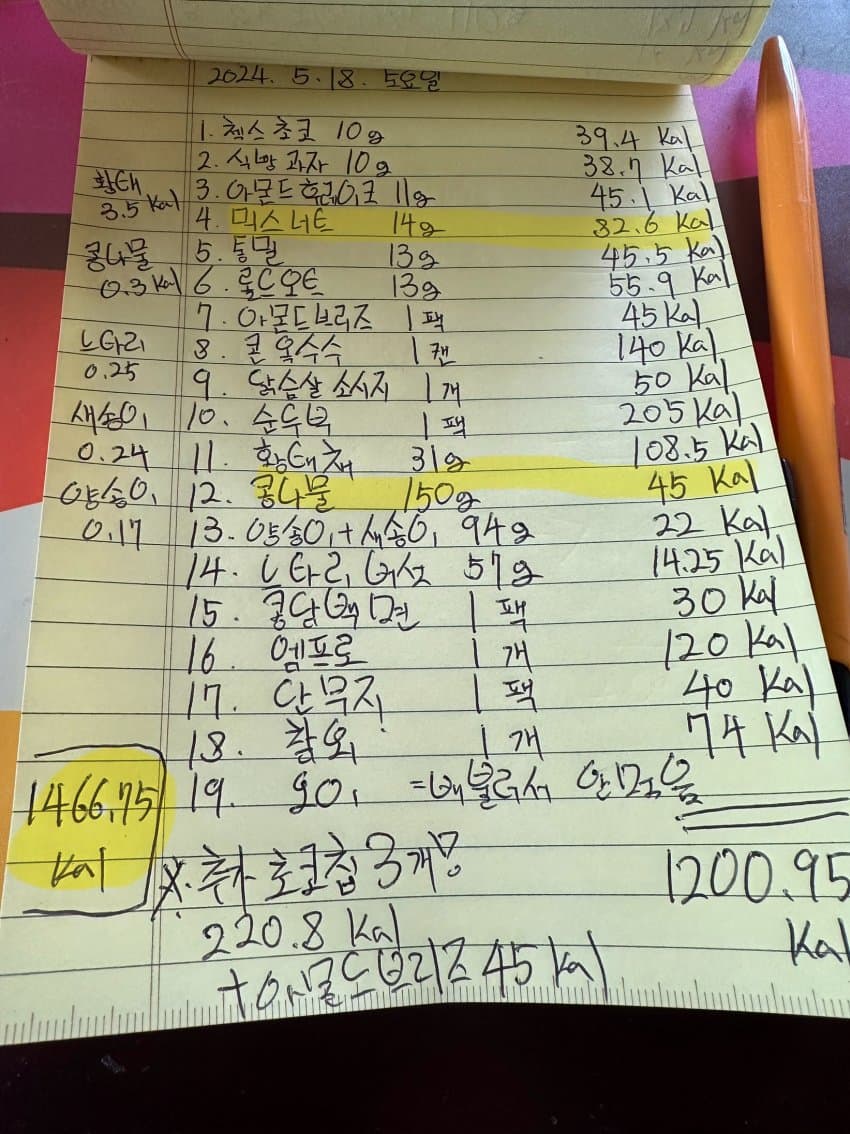 2024. 5. 18. 토요일
1. 첵스초코 10g 39.4 Kal
2. 식빵과자 10g 38.7 Kal
3. 아몬드후레이크 11g 45.1 Kal
4. 믹스너트 14g 82.6 Kal
5. 통밀 13g 45.5 Kal
6. 롤드오트 13g 55.9 Kal
7. 아몬드브리즈 1팩 45 Kal
8. 콘옥수수 1캔 140 Kal
9. 닭슴살 소시지 1개 50 Kal
10. 순두부 1팩 205 Kal
11. 황태채 31g 108.5 Kal
12. 콩나물 150g 45 Kal
13. 양송이+새송이 94g 22 Kal
14. 느타리버섯 57g 14.25 Kal
15. 콩담백면 1팩 30 Kal
16. 엠프로 1개 120 Kal
17. 단무지 1팩 40 Kal
18. 참외 1개 74 Kal
19. 오이 =배불러서 안먹음
1200.95
Kal
황태
3.5 Kal
콩나물
0.3 Kal
느타리
0.25
새송이
0.24
양송이
0.17
1466.75
Kal
※. 추가 초코칩 3개!
220.8 Kal
+아몬드브리즈 45 Kal